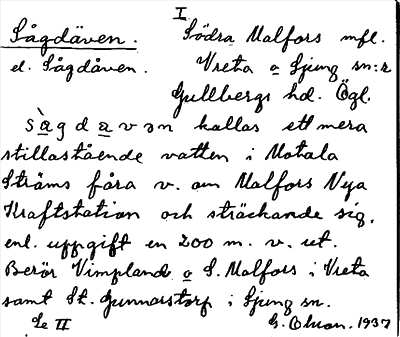 I
Sågdäven. Södra Malfors mfl.
el. Sågdåven. Vreta o Ljung sn:r
Gullbergs hd. Ögl.
sàgdavən kallas ett mera
stillastående vatten i Motala
Ströms fåra v. om Malfors Nya
Kraftstation och sträckande sig,
enl. uppgift en 200 m. v. ut.
Berör Vimpland o S. Malfors i Vreta
samt St. Gunnorstorp i Ljung sn.
Se II G. Olsson. 1937